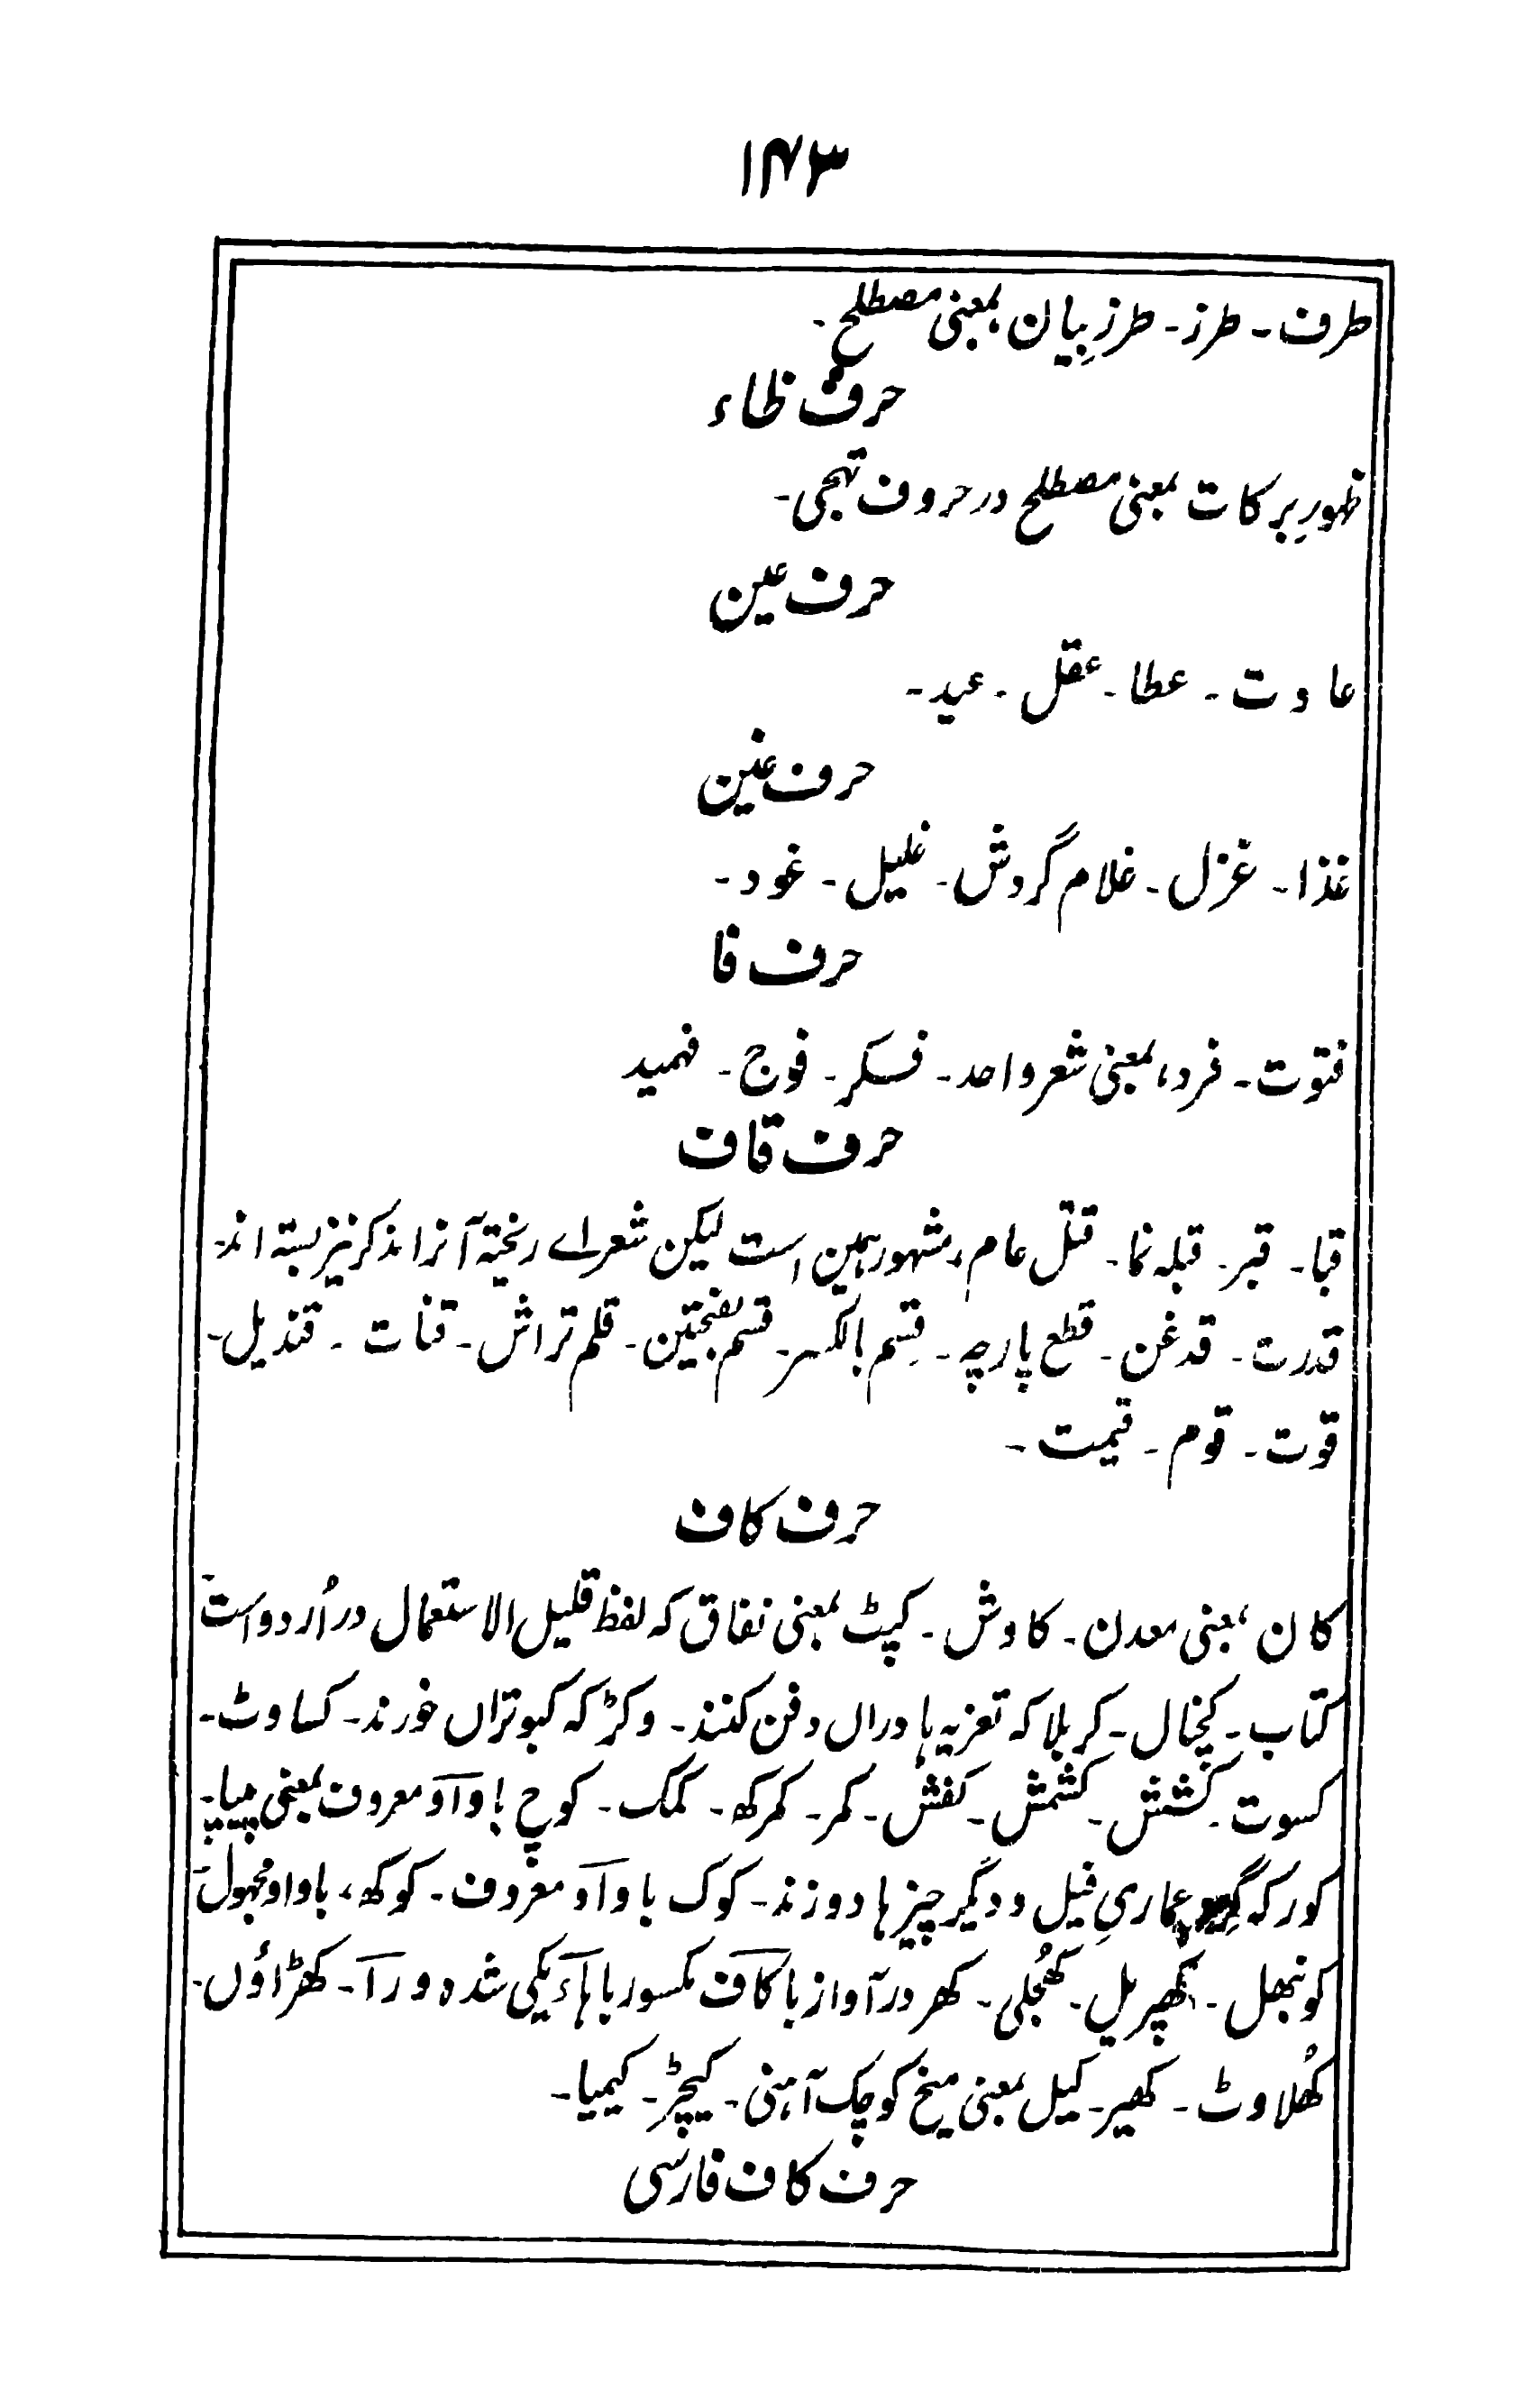 ۱۴۳
طرف۔ طرز۔ طرزِ بیان بمعنی مصطلح۔
حرف ظاء
ظہورِ برکات بمعنی مصطلح در حروف تہجی۔
حرف عین
عادت۔ عطا۔ عقل۔ عید۔
حرف غین
غذا۔ غزل۔ غلام گردش۔ غلیل۔ غود۔
حرف فا
فتوت۔ فرد، بمعنی شعر واحد۔ فسکر۔ فوج۔ فہمید
حرف قاف
قبا۔ قبر۔ قبلہ نما۔ قتل عام، مشہور ہمین است لیکن شعراے ریختہ آنرا مذکر نیز بستہ اند۔
قدرت۔ قدغن۔ قطع پارچہ۔ قِسم بالکسر۔ قسم بفتحتین۔ قلم تراش۔ قنات۔ قندیل۔
قوت۔ قوم۔ قیمت۔
حرف کاف
کان بمعنی معدن۔ کاوش۔ کپٹ بمعنی نفاق کہ لفظ قلیل الاستعمال در اُردو است۔
کتاب۔ کچنال۔ کربلا کہ تعزیہ ہا دراں دفن کنند۔ وکڑ کہ کبوتراں خورند۔ کساوٹ۔
کسوت۔ کشش۔ کشمش۔ کفش۔ کمر۔ کمرکھ۔ کمک۔ کوچ با واو معروف بمعنی
کور کہ عماریِ فیل و دیگر چیزہا دوزند۔ کوک با واو معروف۔ کوکھ، با واو مجہول۔
کونبھل۔ کھپریل۔ کھُجلی۔ کھر در آواز با کاف مکسور با ہاے یکی شدہ و را۔ کھڑاؤں۔
کھُلاوٹ۔ کھیر۔ کیل بمعنی میخ کوچک آہنی۔ کیچڑ۔ کیمیا۔
حرف کاف فارسی